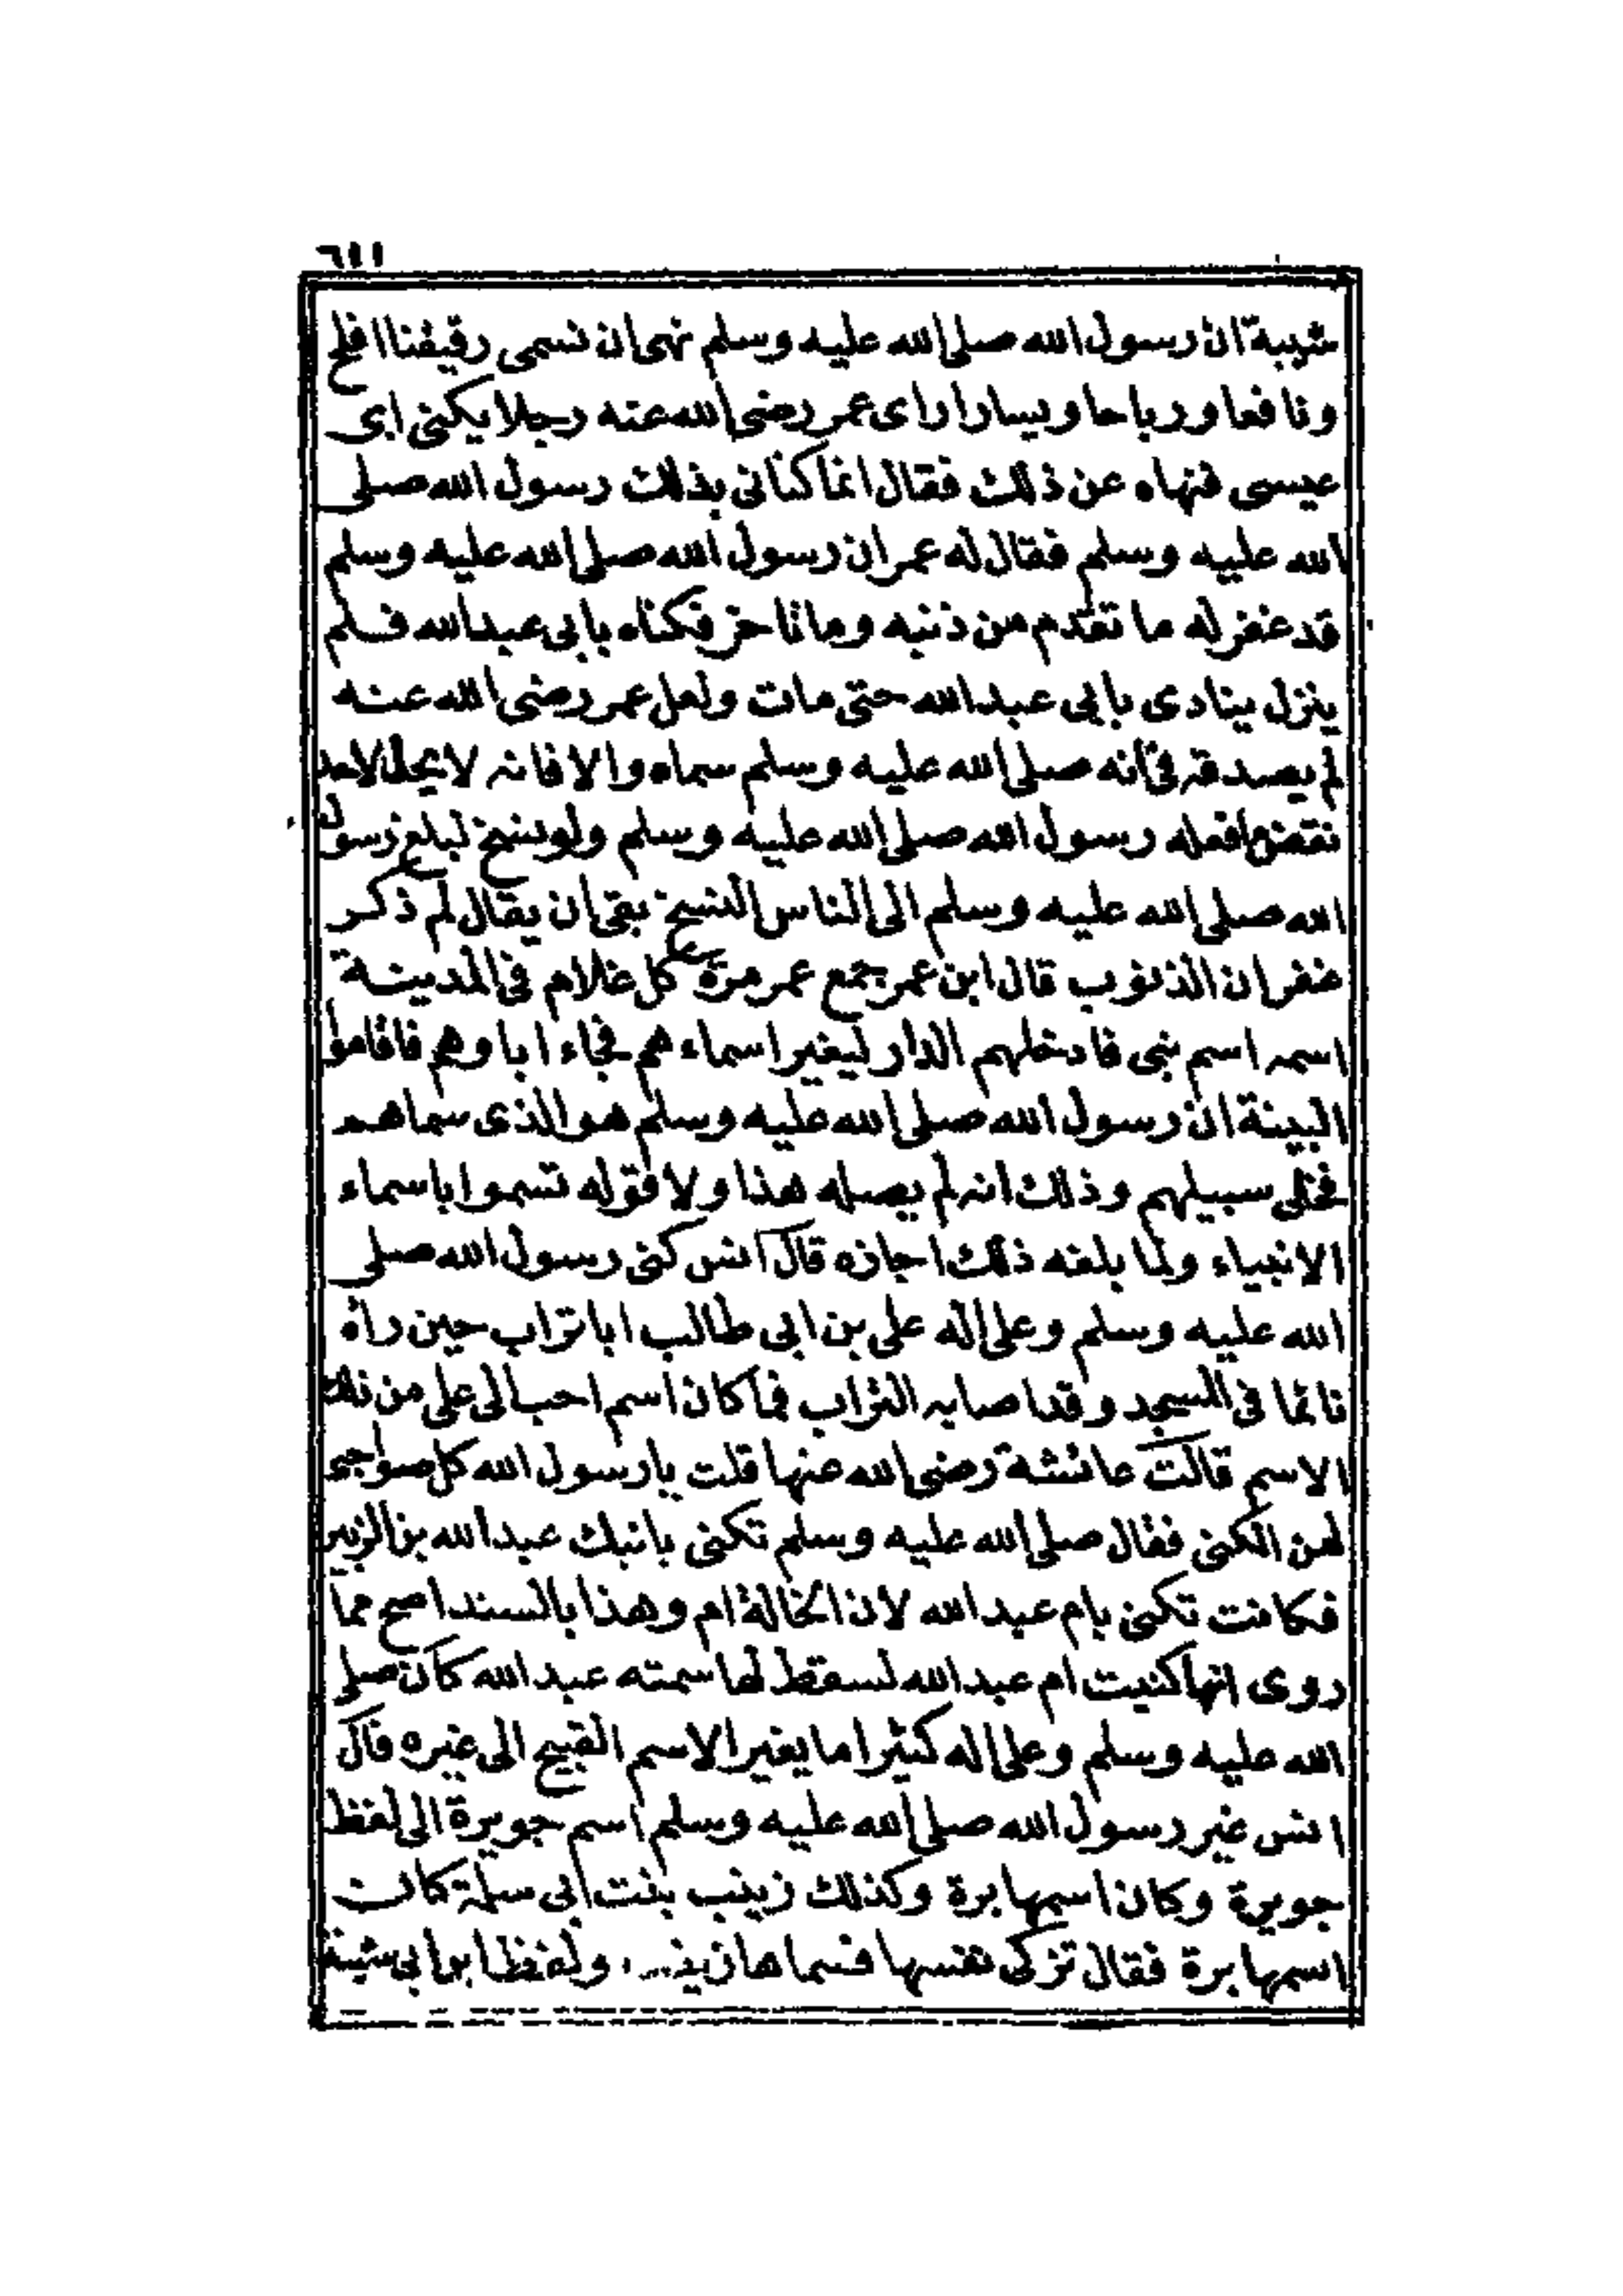 ٦١١
شيبة ان رسول الله صلى الله عليه وسلم نهى ان نسمى رقيقنا افلح
ونافعا ورباحا ويسارا راى عمر رضى الله عنه رجلا يكنى ابى
عيسى فنهاه عن ذلك فقال انما كنانى بذلك رسول الله صلى
الله عليه وسلم فقال له عمر ان رسول الله صلى الله عليه وسلم
قد غفر له ما تقدم من ذنبه وما تاخر فكناه بابى عبد الله فلم
ينزل ينادى بابى عبد الله حتى مات ولعل عمر رضى الله عنه
لم يصدقه فى انه صلى الله عليه وسلم سماه والا فانه لا يحل لاحد
نقض ما فعله رسول الله صلى الله عليه وسلم ولو نسخ لبلغ رسول
الله صلى الله عليه وسلم الى الناس النسخ بقى ان يقال لم ذكر
غفران الذنوب قال ابن عمر جمع عمر مرة كل غلام فى المدينة
اسمه اسم نبى فادخلهم الدار ليغير اسماء هم فجاء اباوهم فاقاموا
البينة ان رسول الله صلى الله عليه وسلم هو الذى سماهم
فخلى سبيلهم وذلك انه لم يصله هذا ولا قوله تسموا باسماء
الانبياء ولما بلغه ذلك اجازه قال انس كنى رسول الله صلى
الله عليه وسلم وعلى اله على بن ابى طالب ابا تراب حين راه
نائما فى المسجد وقد اصابه التراب فما كان اسم احب الى على من ذلك
الاسم قالت عائشة رضى الله عنها قلت يا رسول الله كل صواحبى
لهن الكنى فقال صلى الله عليه وسلم تكنى بانبك عبد الله بن الزبير
فكانت تكنى بام عبد الله لان الخالة ام وهذا بالسند اصح مما
روى انها كنيت ام عبد الله لسقط لها سمته عبد الله كان صلى
الله عليه وسلم وعلى اله كثيرا ما يغير الاسم القبيح الى غيره قال
انس غير رسول الله صلى الله عليه وسلم اسم جويرة الى لفظ
جويرة وكان اسمها برة وكذلك زينب بنت ابى سلمة كانت
اسمها برة فقال تزكى نفسها فسماها زينب ولفظ ابو ابى شيبة